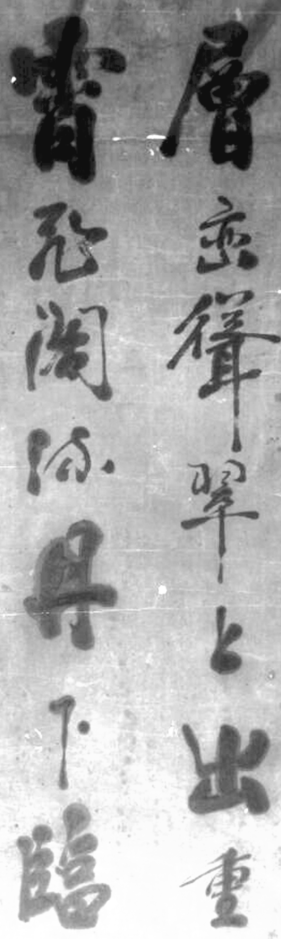 層巒聳翠上出重
霄飛閣流丹下臨